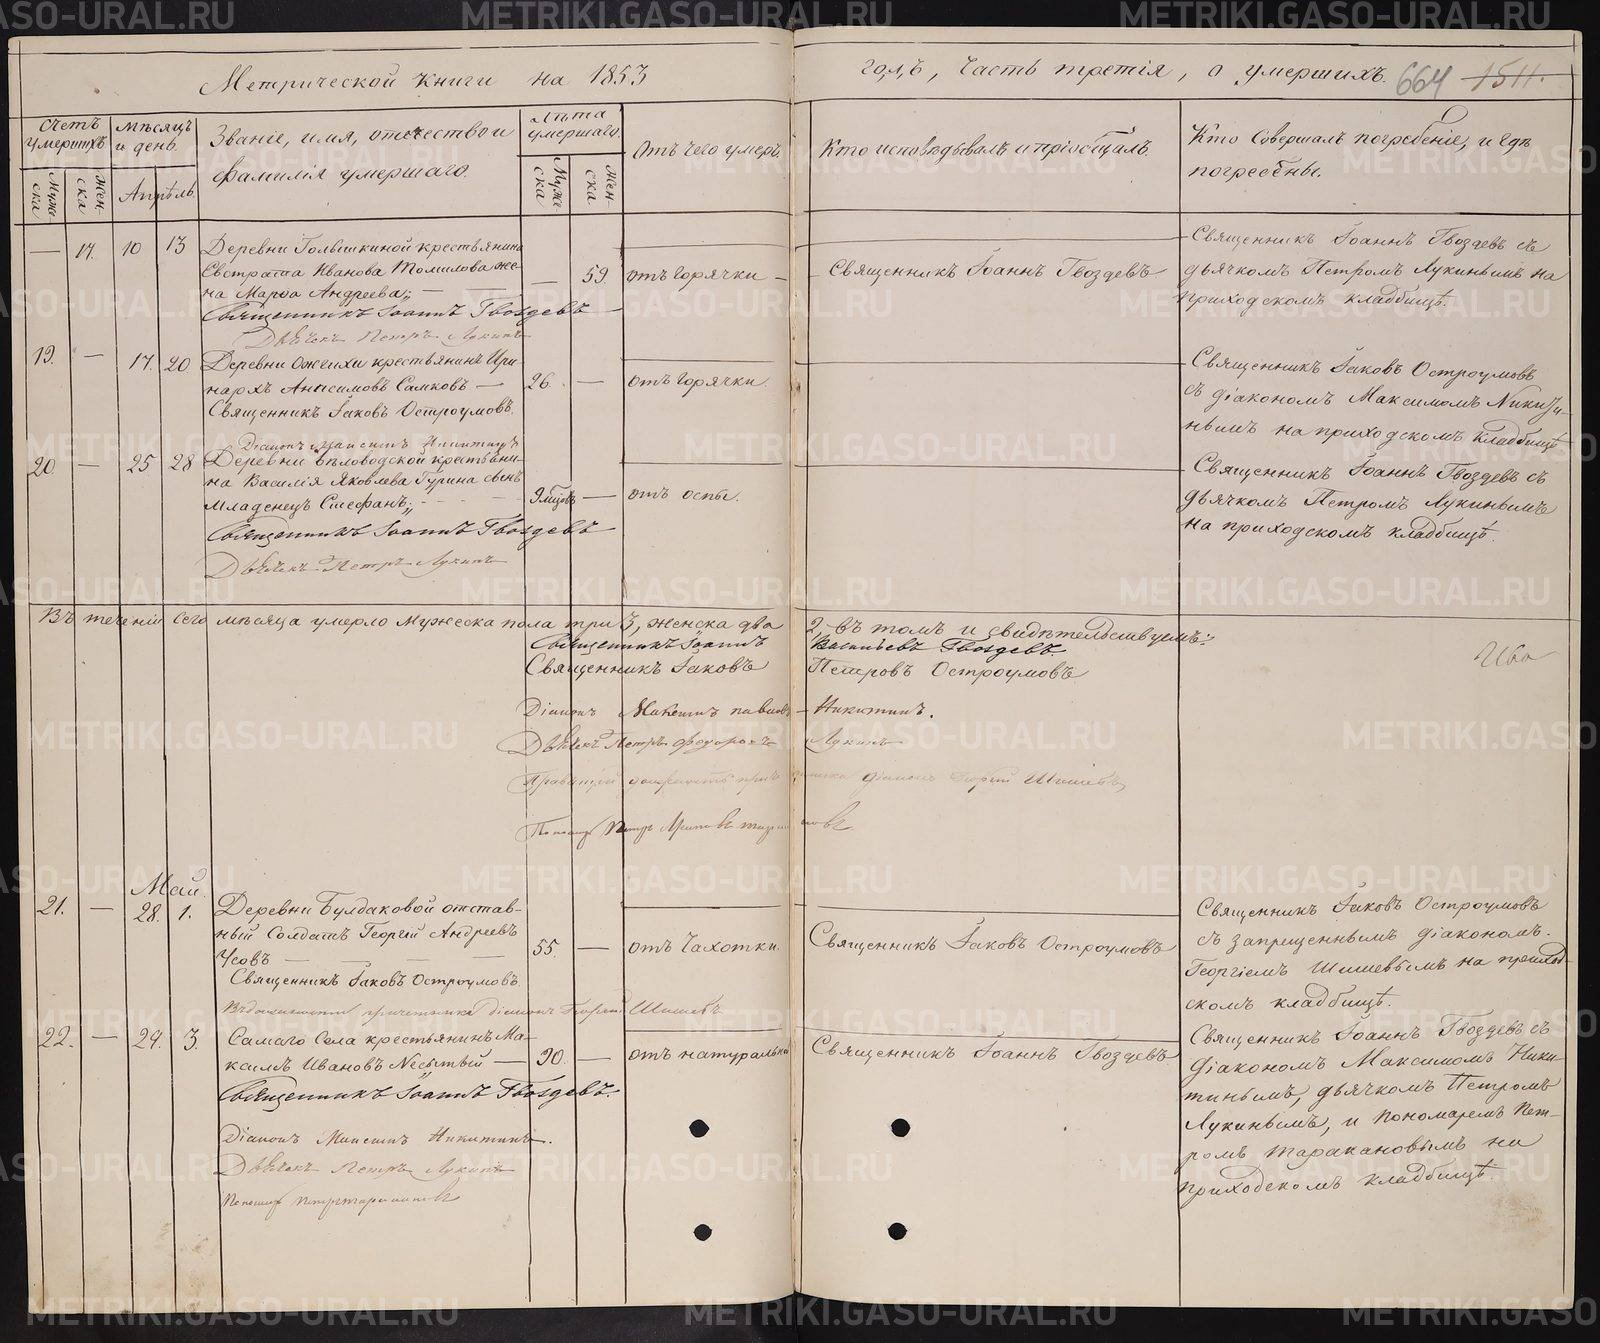 Метрической книги на 1853 годъ, часть третія, о умершихъ. 664 1511.
Счетъ умершихъ
Муже-ска
Жен-ска
Мѣсяцъ и день.
Апрѣль.
Званіе, имя, отечество и
фамилія умершаго.
Лѣта умершаго.
Муже-ска
Жен-ска
Отъ чего умеръ.
Кто исповѣдывалъ и пріобщалъ.
Кто совершалъ погребеніе, и гдѣ
погребены.
— 17. 10 13 Деревни Голышкиной крестьянина
Евстрата Иванова Томилова же-
на Марѳа Андреева;
— 59. отъ горячки —
Священникъ Іоаннъ Гвоздевъ
Священникъ Іоаннъ Гвоздевъ съ
дьячкомъ Петромъ Лукинымъ на
приходскомъ кладбищѣ.
Священникъ Іоаннъ Гвоздевъ
Дьячекъ Петръ Лукинъ
19. — 17. 20 Деревни Ожгихи крестьянинъ Ири-
нархъ Анисимовъ Самковъ —
26. — отъ горячки
Священникъ Іаковъ Остроумовъ
съ діакономъ Максимомъ Никити-
нымъ на приходскомъ кладбищѣ
Священникъ Іаковъ Остроумовъ.
Діаконъ Максимъ Никитинъ
20. — 25 28 Деревни Бѣловодской крестьяни-
на Василія Яковлева Гурина сынъ
младенецъ Стефанъ;
9 мѣсцовъ — отъ оспы.
Священникъ Іоаннъ Гвоздевъ съ
дьячкомъ Петромъ Лукинымъ
на приходскомъ кладбищѣ.
Священникъ Іоаннъ Гвоздевъ
Дьячекъ Петръ Лукинъ
Въ теченіи сего мѣсяца умерло мужеска пола три 3, женска два 2, — въ томъ и свидѣтельствуемъ:
Священникъ Іоаннъ Васильевъ Гвоздевъ.
Священникъ Іаковъ Петровъ Остроумовъ
Діаконъ Максимъ Павловъ Никитинъ.
Дьячекъ Петръ Федоровъ Лукинъ
діаконъ Георгій Шишевъ
Май.
21. — 28. 1. Деревни Булдаковой отстав-
ный солдатъ Георгій Андреевъ
Усовъ —
55. — отъ чахотки.
Священникъ Іаковъ Остроумовъ
Священникъ Іаковъ Остроумовъ
съ запрещеннымъ діакономъ.
Георгіемъ Шишевымъ на приход-
скомъ кладбищѣ.
Священникъ Іаковъ Остроумовъ.
Въ должности причетника діаконъ Георгій Шишевъ
22. — 29. 3. Самаго села крестьянинъ Ма-
каилъ Ивановъ Несытый —
90. — отъ натуральной
Священникъ Іоаннъ Гвоздевъ
Священникъ Іоаннъ Гвоздевъ съ
діакономъ Максимомъ Ники-
тинымъ, дьячкомъ Петромъ
Лукинымъ, и пономаремъ Пет-
ромъ Таракановымъ на
приходскомъ кладбищѣ.
Священникъ Іоаннъ Гвоздевъ.
Діаконъ Максимъ Никитинъ.
Дьячекъ Петръ Лукинъ
Пономарь Петръ Таракановъ
METRIKI.GASO-URAL.RU